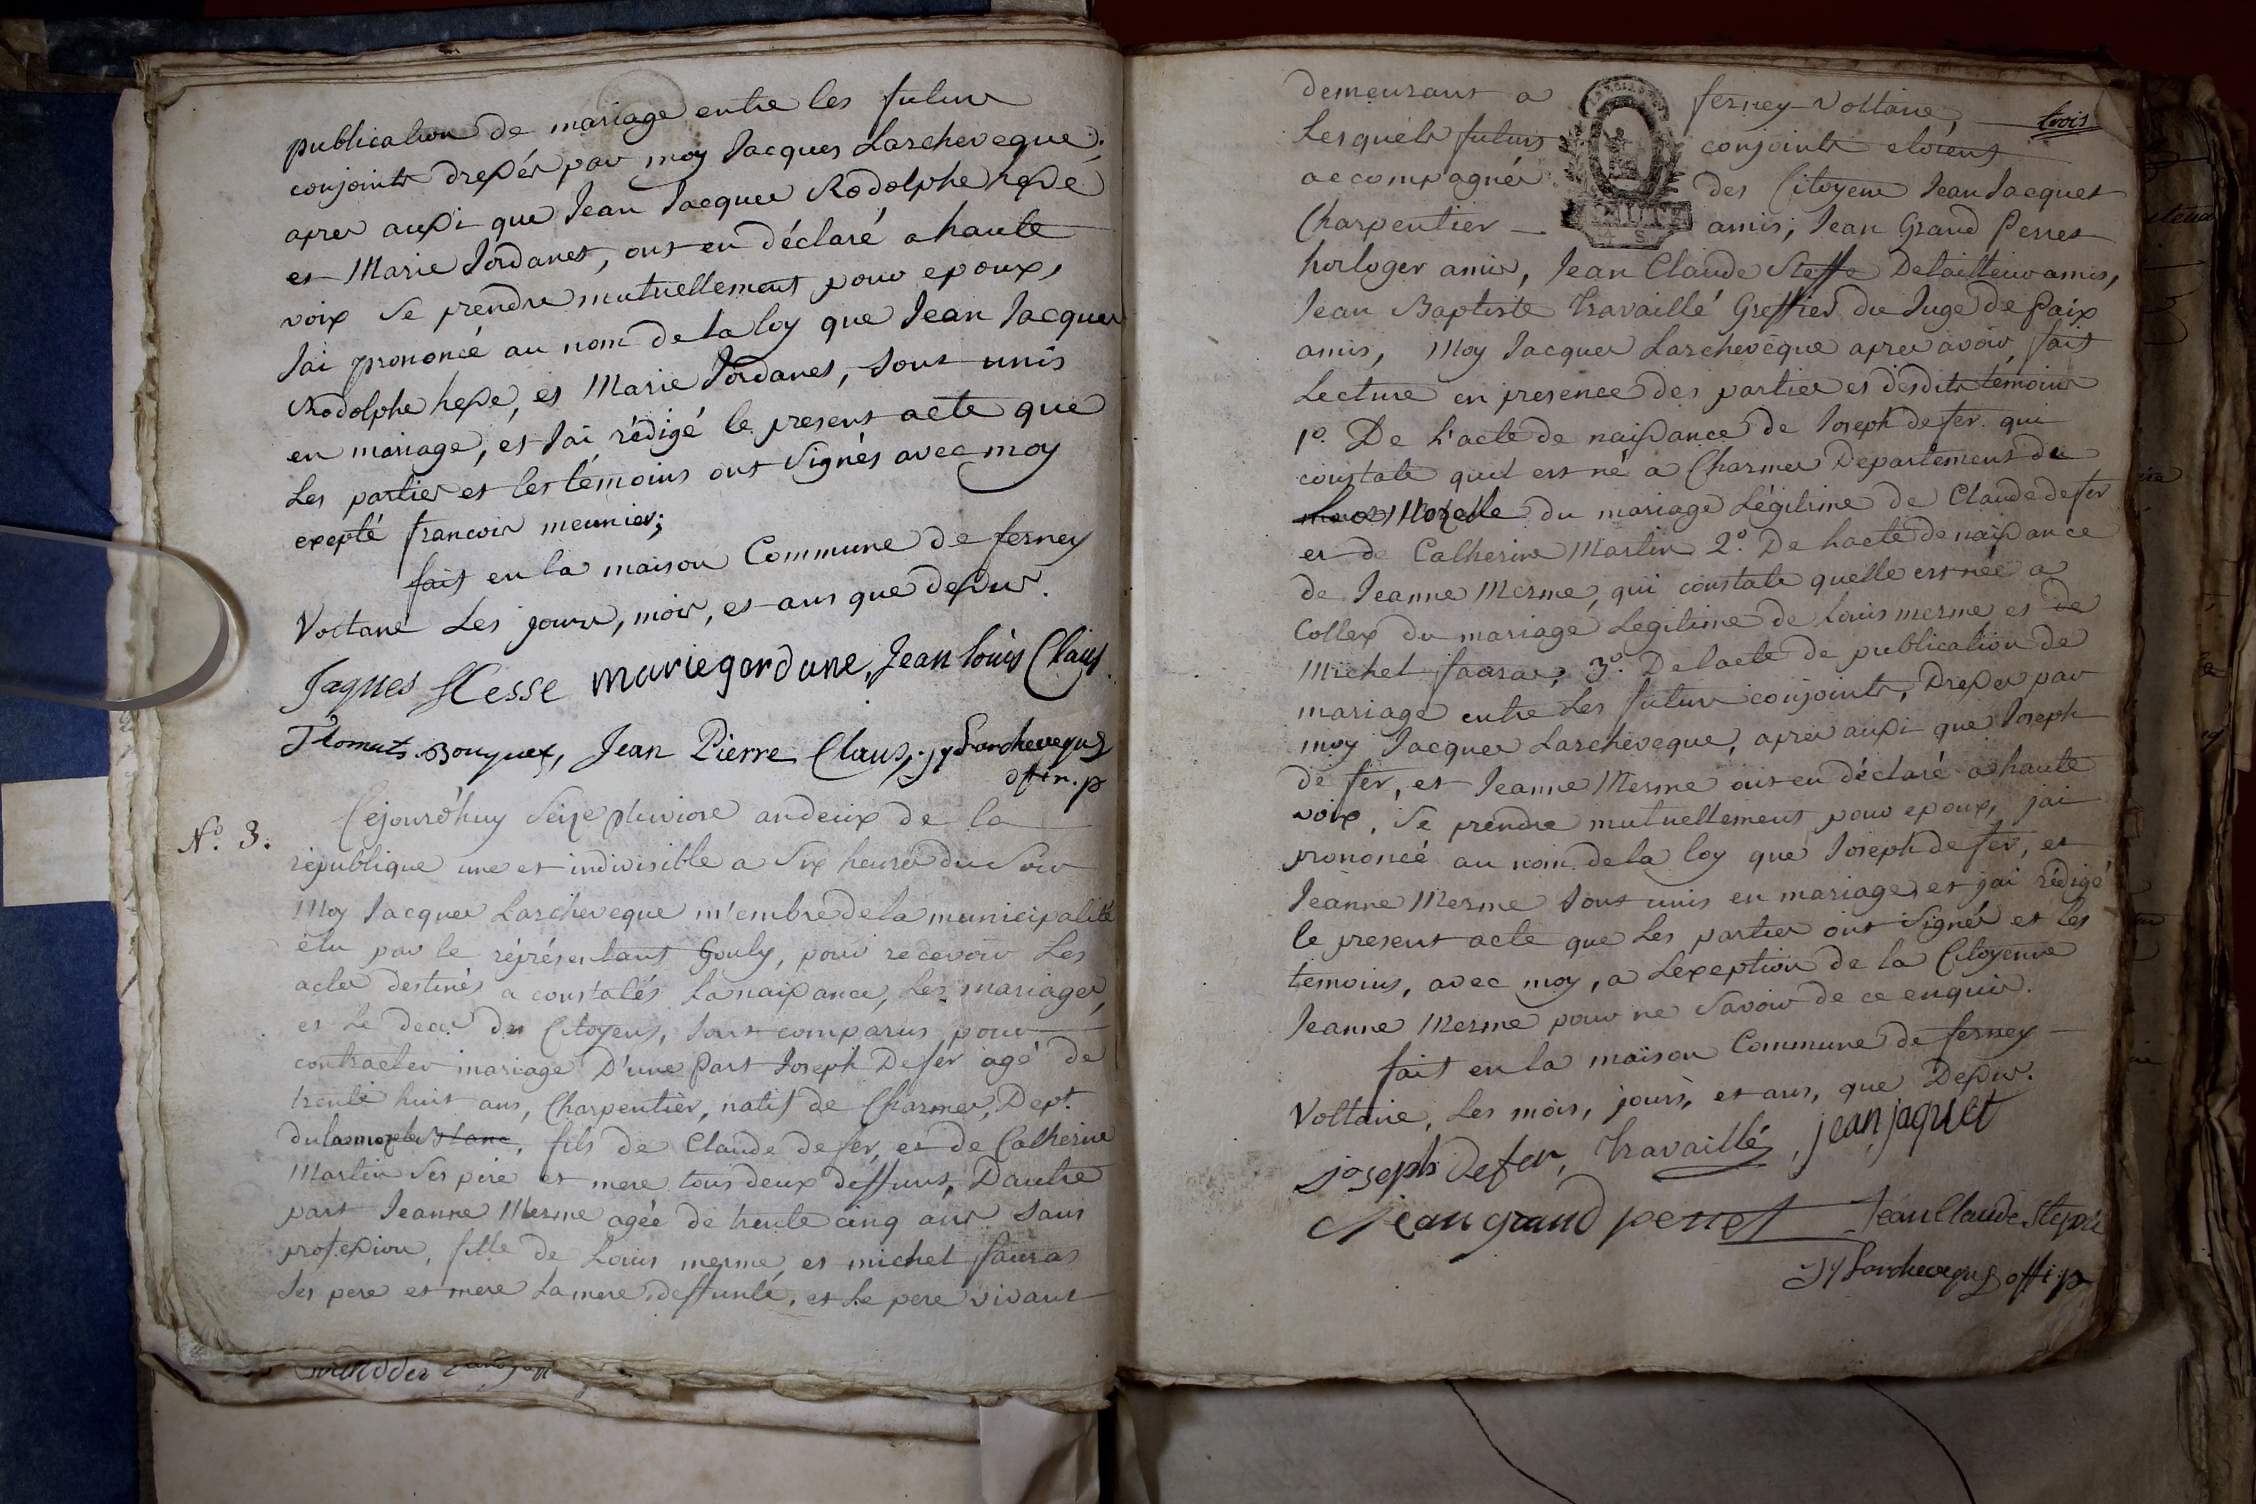 publication de mariage entre les futurs
conjoints dressés par moy Jacques Larcheveque;
apres aussi que Jean Jacques Rodolphe hesse
et Marie Jordanet, ont eu déclaré a haute
voix se prendre mutuellement pour epoux,
Jai prononcé au nom de la loy que Jean Jacques
Rodolphe hesse, et Marie Jordanet, sont unis
en mariage, et Jai rédigé le present acte que
Les parties et les témoins ont signés avec moy
expté francois meunier;
fait en la maison Commune de ferney
Voltaire Les jours, mois, et ans que dessus.
Jaques Hesse mariegordane, Jean louis Claus.
Bouquet, Jean Pierre Claus, jy Larcheveque
offir. p
N.o 3.
Cejourd'huy Seize pluviose an deux de la
republique une et indivisible a Six heures du Soir
Moy Jacques Larcheveque m'embre de la municipalité
élu par le réprésentant Gouly, pour recevoir Les
actes destinés a constatés La naissance, Les mariages,
et Le deces des Citoyens, sont comparus pour
contracter mariage D'une Part Joseph Defer agé de
trente huit ans, Charpentier, natif de Charmes, Dept.
du la mozelle blanc, fils de Claude defer, et de Catherine
Martin Ses pere et mere tous deux déffunt, Dautre
part Jeanne Merme agée de trente cinq ans Sans
profession, fille de Louis merme et michel faura
Ses pere et mere La mere deffunte, et Le pere vivant
demeurant a ferney-Voltaire, trois
Lesquels futurs conjoints etoient
accompagnés des Citoyens Jean Jacquet
Charpentier amis; Jean Grand Perret
horloger amis, Jean Claude Steffe Detailleur amis,
Jean Baptiste travaillé Greffier du Juge de Paix
amis, Moy Jacques Larcheveque apres avoir fait
Lecture en presence des parties et desdits témoins
1o. De L'acte de naissance de Joseph defer qui
constate quil est né a Charmes Departement de
Mozelle du mariage Légitime de Claude defer
et de Catherine Martin 2o. De Lacte de naissance
de Jeanne Merme, qui constate quelle est née a
Collex du mariage Legitime de Louis merme et de
Michel faura; 3o. De lacte de publication de
mariage entre Les futurs conjoints, Dressés par
moy Jacques Larcheveque, apres aussi que Joseph
de fer, et Jeanne Merme ont eu déclaré a haute
voix, Se prendre mutuellement pour epoux, jai
prononcé au nom de la loy que Joseph de fer, et
Jeanne Merme Sont unis en mariage, et jai rédigé
le present acte que Les parties ont Signés et les
temoins, avec moy, a Lexeption de la Citoyenne
Jeanne Merme pour ne Savoir de ce enquis.
fait en la maison Commune de ferney
Voltaire, Les mois, jours, et ans, que Dessus.
joseph Defer, travaillé, jean jaquet
Jean grand perret Jean Claude Steffe
jy Larcheveque offi. p